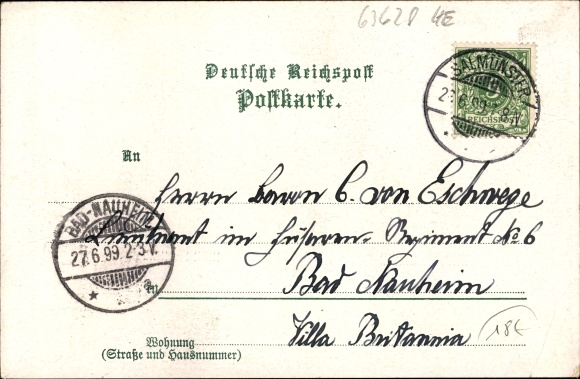 63628 HE
Deutsche Reichspost
Postkarte.
SALMÜNSTER
27.6.99
REICHSPOST
An
Herrn Baron C. von Eschwege
Lieutenant im Husaren-Regiment No 6
BAD-NAUHEIM
27.6.99.2-3V.
in
Bad Nauheim
Villa Britannia
18€
Wohnung
(Straße und Hausnummer)